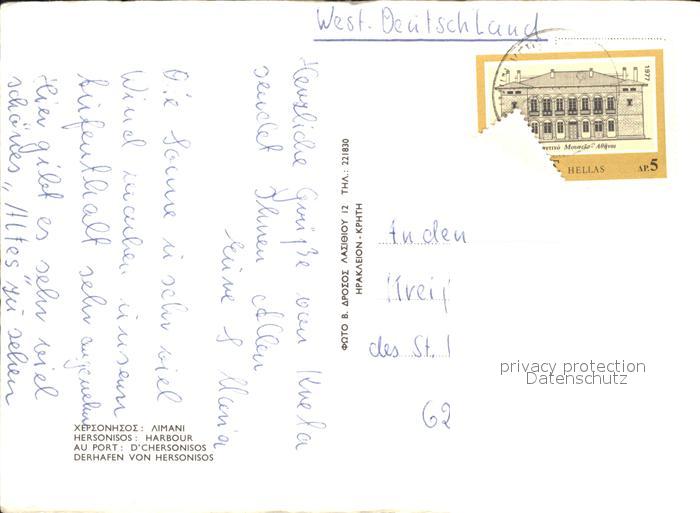 West-Deutschland
1977
Μουσείο - Αθήναι
HELLAS ΔΡ. 5
Die Sonne u sehr viel
Wind machen unseren
Aufenthalt sehr angenehm
Hier gibt es sehr viel
schönes „Altes" zu sehen
Herzliche Grüße von Kreta
sendet Ihnen Allen
Maria
ΦΩΤΟ Β. ΔΡΟΣΟΣ ΛΑΣΙΘΙΟΥ 12 ΤΗΛ.: 221830
ΗΡΑΚΛΕΙΟΝ - ΚΡΗΤΗ
An den
des St.
62
privacy protection
Datenschutz
ΧΕΡΣΟΝΗΣΟΣ: ΛΙΜΑΝΙ
HERSONISOS: HARBOUR
AU PORT: D'CHERSONISOS
DERHAFEN VON HERSONISOS